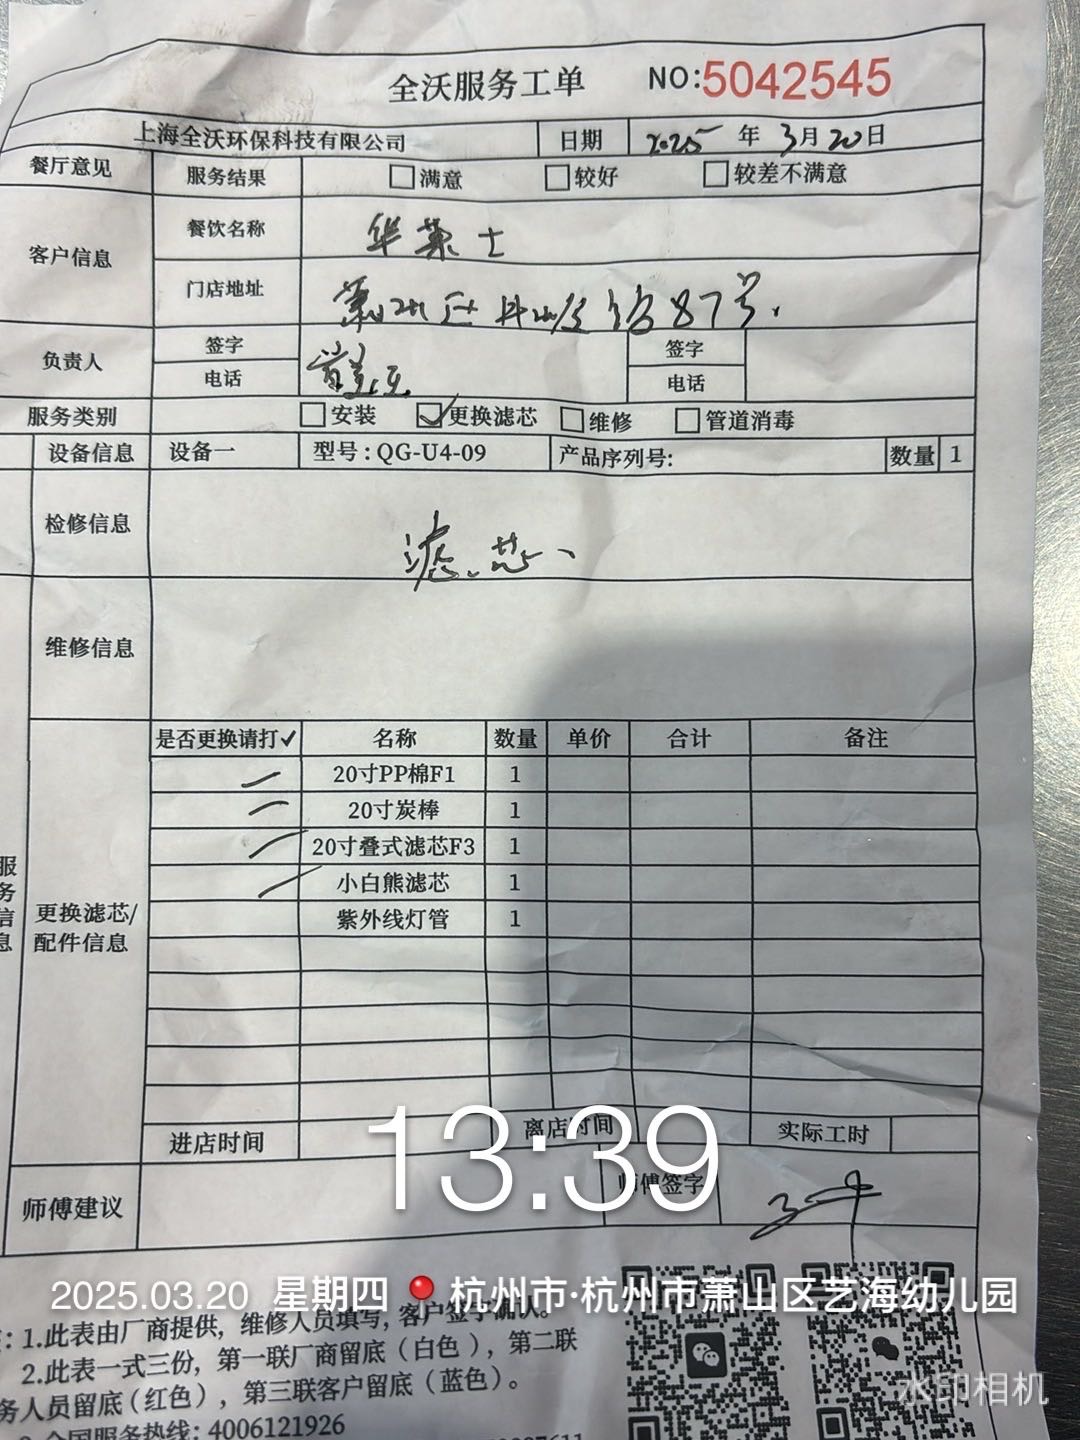 全沃服务工单 NO:5042545
上海全沃环保科技有限公司 日期 2025年3月20日
餐厅意见 服务结果 满意 较好 较差不满意
客户信息 餐饮名称 华莱士
门店地址 萧山区 87号
负责人 签字 签字
电话 电话
服务类别 安装 ✓更换滤芯 维修 管道消毒
设备信息 设备一 型号:QG-U4-09 产品序列号: 数量 1
检修信息 滤芯、
维修信息
是否更换请打✓ 名称 数量 单价 合计 备注
20寸PP棉F1 1
20寸炭棒 1
20寸叠式滤芯F3 1
小白熊滤芯 1
紫外线灯管 1
服务信息
更换滤芯/
配件信息
进店时间 离店时间 实际工时
13:39
师傅建议 师傅签字
2025.03.20 星期四 杭州市·杭州市萧山区艺海幼儿园
:1.此表由厂商提供，维修人员填写，客户签字确认。
2.此表一式三份，第一联厂商留底（白色），第二联
务人员留底(红色)，第三联客户留底（蓝色）。
全国服务热线: 4006121926
水印相机